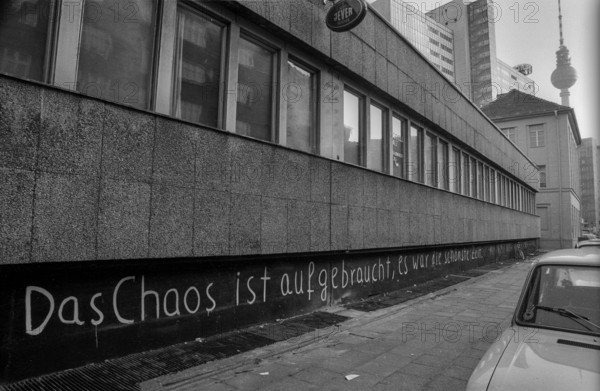 JEVER
Das Chaos ist aufgebraucht, es war die schönste Zeit.
FOTOFINDER.COM